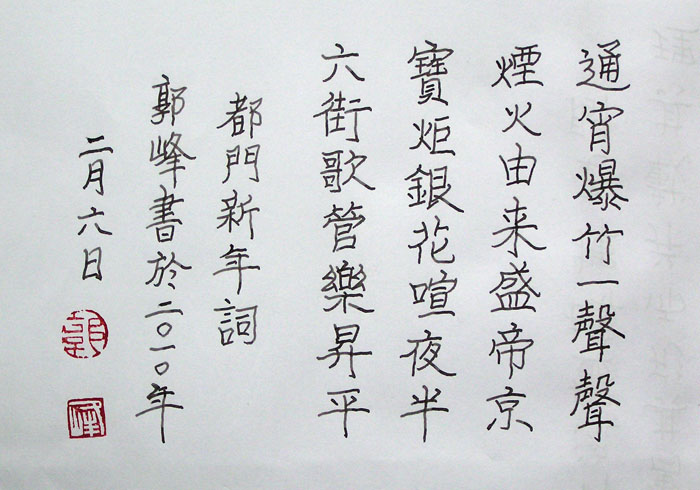 通宵爆竹一聲聲
煙火由来盛帝京
寶炬銀花喧夜半
六街歌管樂昇平
都門新年詞
郭峰書於二〇一〇年
二月六日
郭
峰